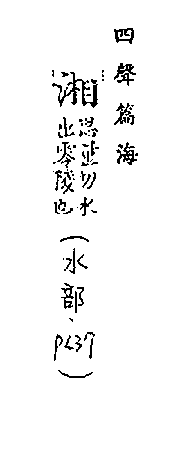 四聲篇海
湘 息並切水出零陵也(水部、P437)